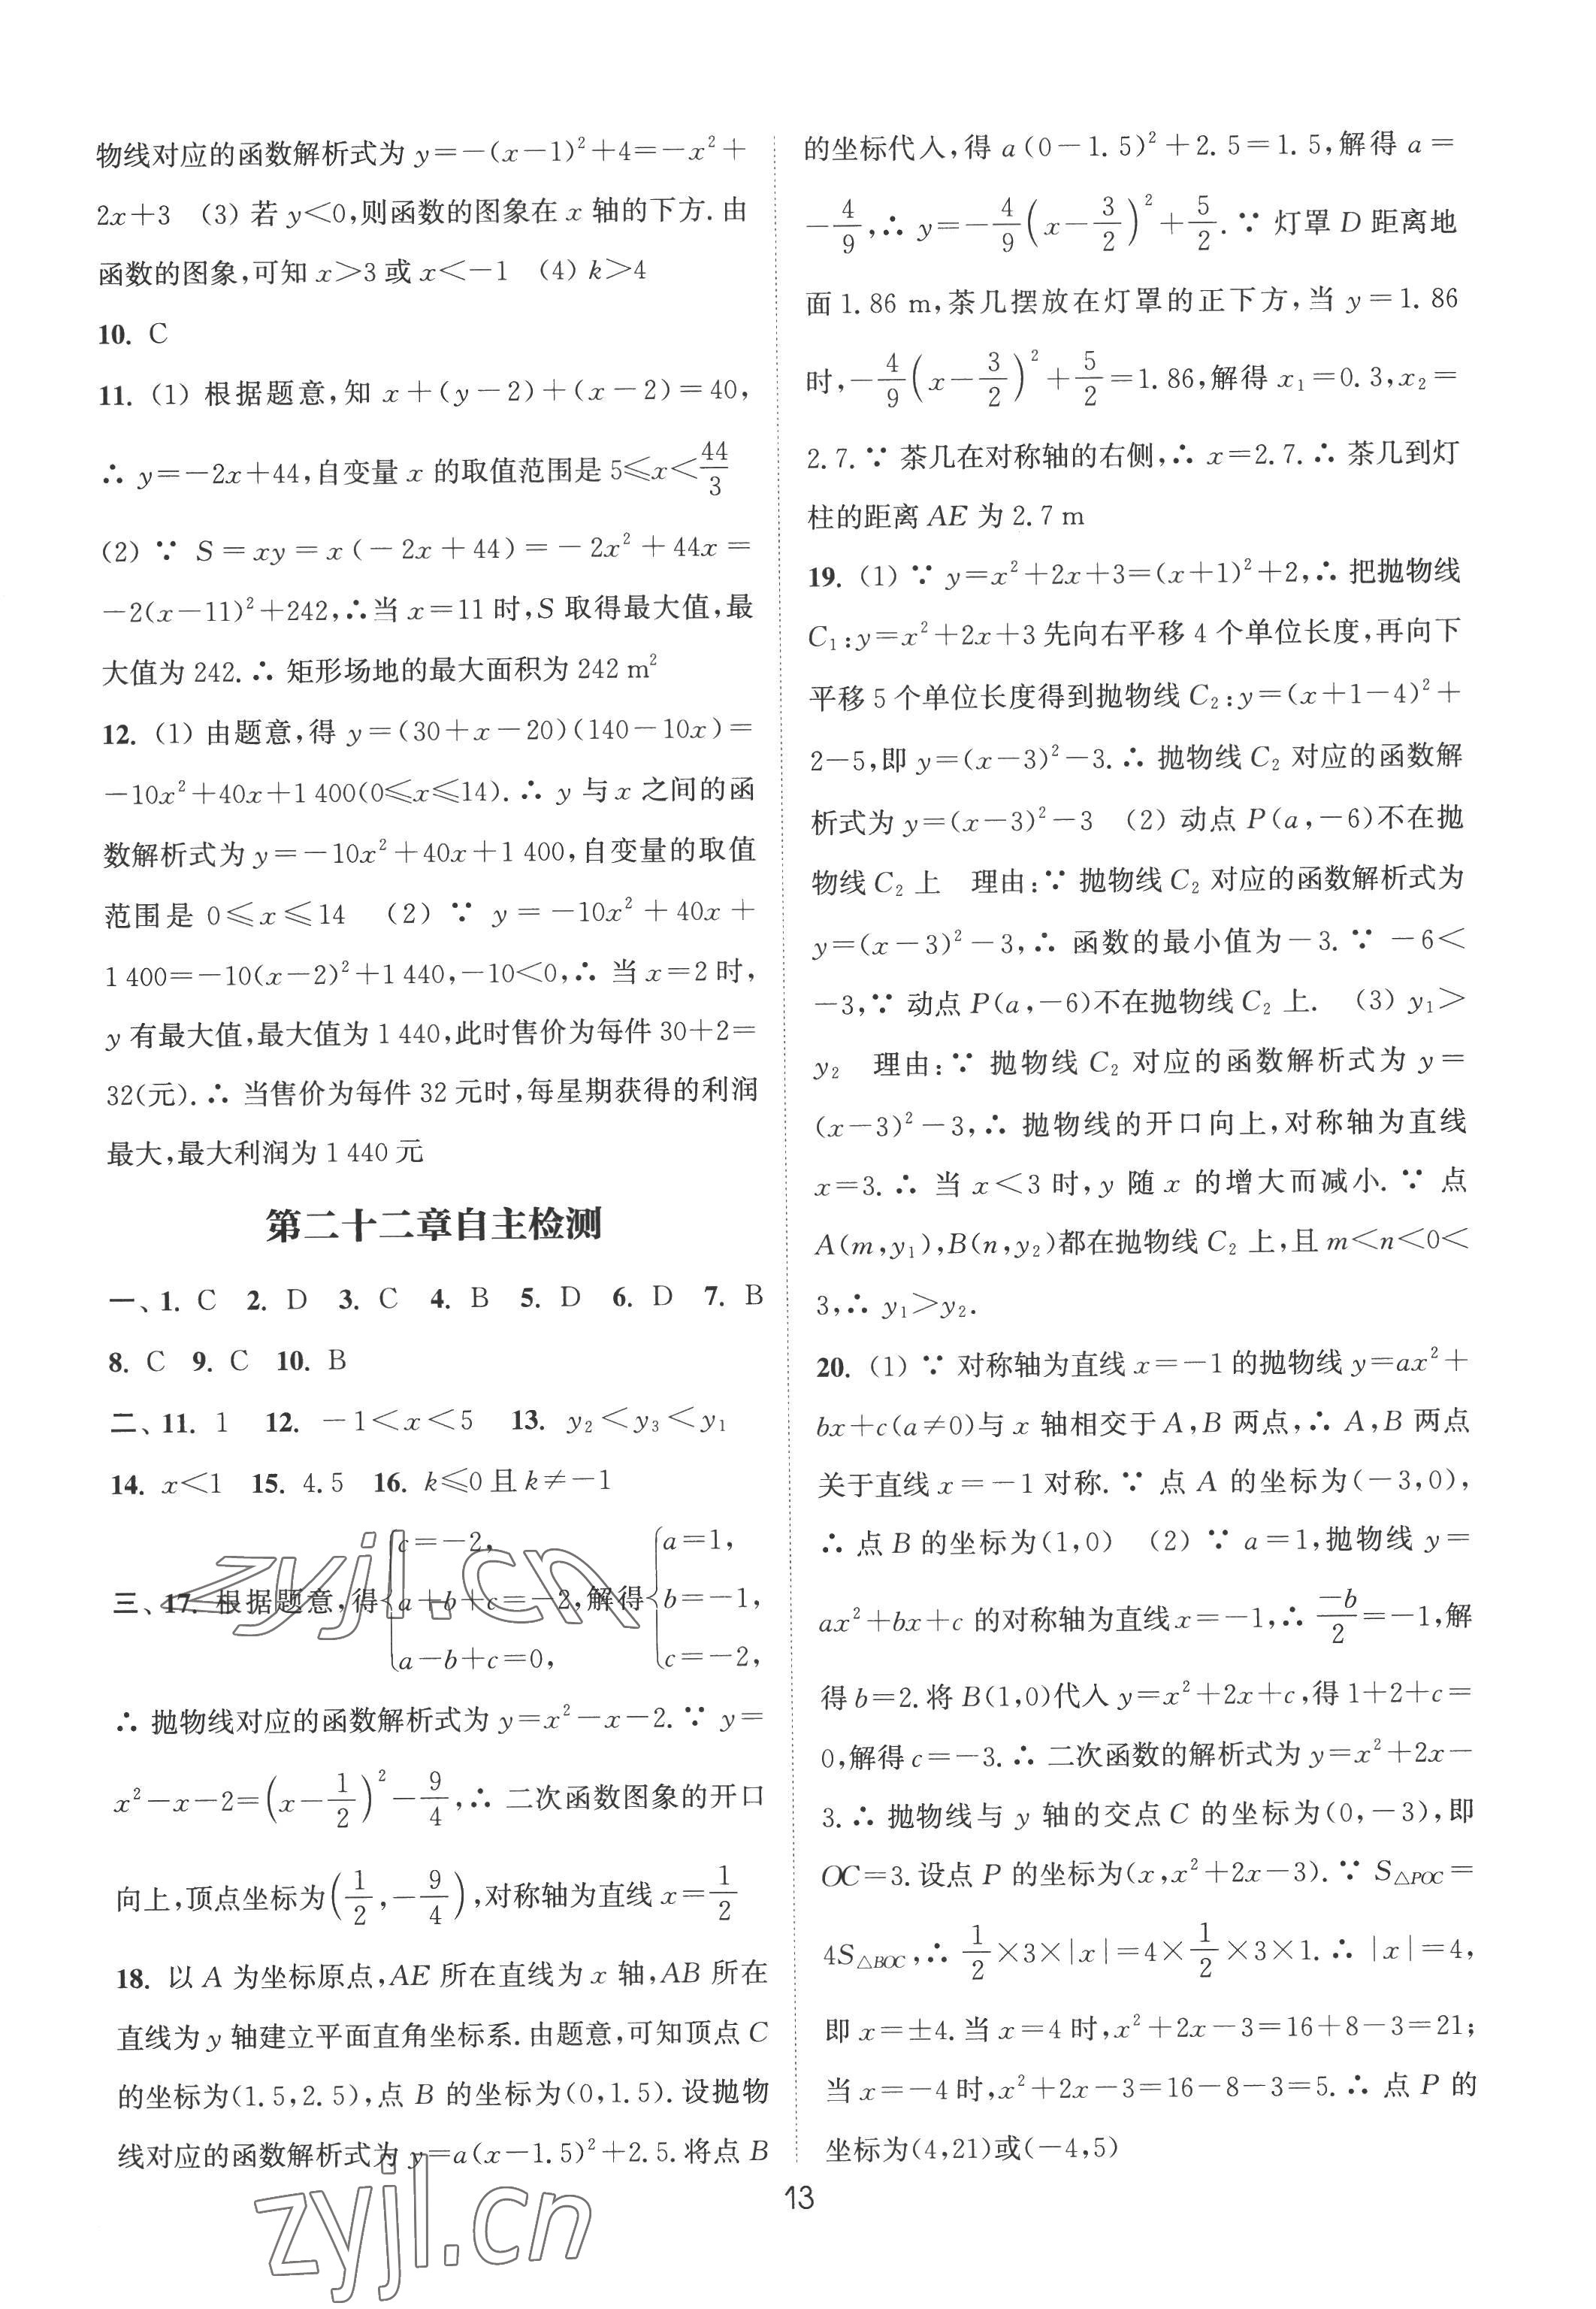 物线对应的函数解析式为 y=-(x-1)²+4=-x²+
2x+3 (3) 若 y<0,则函数的图象在 x 轴的下方.由
函数的图象,可知 x>3 或 x<-1 (4) k>4
10. C
11. (1) 根据题意,知 x+(y-2)+(x-2)=40,
∴ y=-2x+44,自变量 x 的取值范围是 5≤x<44/3
(2) ∵ S=xy=x(-2x+44)=-2x²+44x=
-2(x-11)²+242,∴当 x=11 时,S 取得最大值,最
大值为 242.∴ 矩形场地的最大面积为 242 m²
12. (1) 由题意,得 y=(30+x-20)(140-10x)=
-10x²+40x+1 400(0≤x≤14).∴ y 与 x 之间的函
数解析式为 y=-10x²+40x+1 400,自变量的取值
范围是 0≤x≤14 (2) ∵ y=-10x²+40x+
1 400=-10(x-2)²+1 440,-10<0,∴ 当 x=2 时,
y 有最大值,最大值为 1 440,此时售价为每件 30+2=
32(元).∴ 当售价为每件 32 元时,每星期获得的利润
最大,最大利润为 1 440 元
第二十二章自主检测
一、1. C 2. D 3. C 4. B 5. D 6. D 7. B
8. C 9. C 10. B
二、11. 1 12. -1<x<5 13. y₂<y₃<y₁
14. x<1 15. 4.5 16. k≤0 且 k≠-1
三、17. 根据题意,得{c=-2, a+b+c=-2, a-b+c=0, 解得{a=1, b=-1, c=-2,
∴ 抛物线对应的函数解析式为 y=x²-x-2.∵ y=
x²-x-2=(x-1/2)²-9/4,∴ 二次函数图象的开口
向上,顶点坐标为(1/2,-9/4),对称轴为直线 x=1/2
18. 以 A 为坐标原点,AE 所在直线为 x 轴,AB 所在
直线为 y 轴建立平面直角坐标系.由题意,可知顶点 C
的坐标为(1.5,2.5),点 B 的坐标为(0,1.5).设抛物
线对应的函数解析式为 y=a(x-1.5)²+2.5.将点 B
的坐标代入,得 a(0-1.5)²+2.5=1.5,解得 a=
-4/9,∴ y=-4/9(x-3/2)²+5/2.∵ 灯罩 D 距离地
面 1.86 m,茶几摆放在灯罩的正下方,当 y=1.86
时,-4/9(x-3/2)²+5/2=1.86,解得 x₁=0.3,x₂=
2.7.∵ 茶几在对称轴的右侧,∴ x=2.7.∴ 茶几到灯
柱的距离 AE 为 2.7 m
19. (1) ∵ y=x²+2x+3=(x+1)²+2,∴ 把抛物线
C₁:y=x²+2x+3 先向右平移 4 个单位长度,再向下
平移 5 个单位长度得到抛物线 C₂:y=(x+1-4)²+
2-5,即 y=(x-3)²-3.∴ 抛物线 C₂ 对应的函数解
析式为 y=(x-3)²-3 (2) 动点 P(a,-6)不在抛
物线 C₂ 上 理由:∵ 抛物线 C₂ 对应的函数解析式为
y=(x-3)²-3,∴ 函数的最小值为-3.∵ -6<
-3,∵ 动点 P(a,-6)不在抛物线 C₂ 上. (3) y₁>
y₂ 理由:∵ 抛物线 C₂ 对应的函数解析式为 y=
(x-3)²-3,∴ 抛物线的开口向上,对称轴为直线
x=3.∴ 当 x<3 时,y 随 x 的增大而减小.∵ 点
A(m,y₁),B(n,y₂)都在抛物线 C₂ 上,且 m<n<0<
3,∴ y₁>y₂.
20. (1) ∵ 对称轴为直线 x=-1 的抛物线 y=ax²+
bx+c(a≠0)与 x 轴相交于 A,B 两点,∴ A,B 两点
关于直线 x=-1 对称.∵ 点 A 的坐标为(-3,0),
∴ 点 B 的坐标为(1,0) (2) ∵ a=1,抛物线 y=
ax²+bx+c 的对称轴为直线 x=-1,∴ -b/2=-1,解
得 b=2.将 B(1,0)代入 y=x²+2x+c,得 1+2+c=
0,解得 c=-3.∴ 二次函数的解析式为 y=x²+2x-
3.∴ 抛物线与 y 轴的交点 C 的坐标为(0,-3),即
OC=3.设点 P 的坐标为(x,x²+2x-3).∵ S△POC=
4S△BOC,∴ 1/2×3×|x|=4×1/2×3×1.∴ |x|=4,
即 x=±4.当 x=4 时,x²+2x-3=16+8-3=21;
当 x=-4 时,x²+2x-3=16-8-3=5.∴ 点 P 的
坐标为(4,21)或(-4,5)
13
zyjl.cn
zyjl.cn